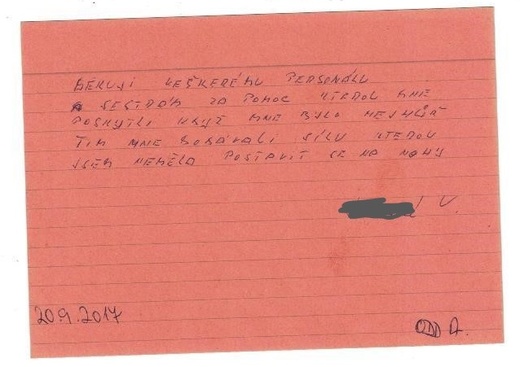 DĚKUJI VEŠKERÉMU PERSONÁLU
A SESTRÁM ZA POMOC KTEROU MNE
POSKYTLI KDYŽ MNE BYLO NEJHŮŘ
TIM MNE DODÁVALI SÍLU KTEROU
JSEM NEMĚLA POSTAVIT SE NA NOHY
V.
20.9.2017
ODD A.